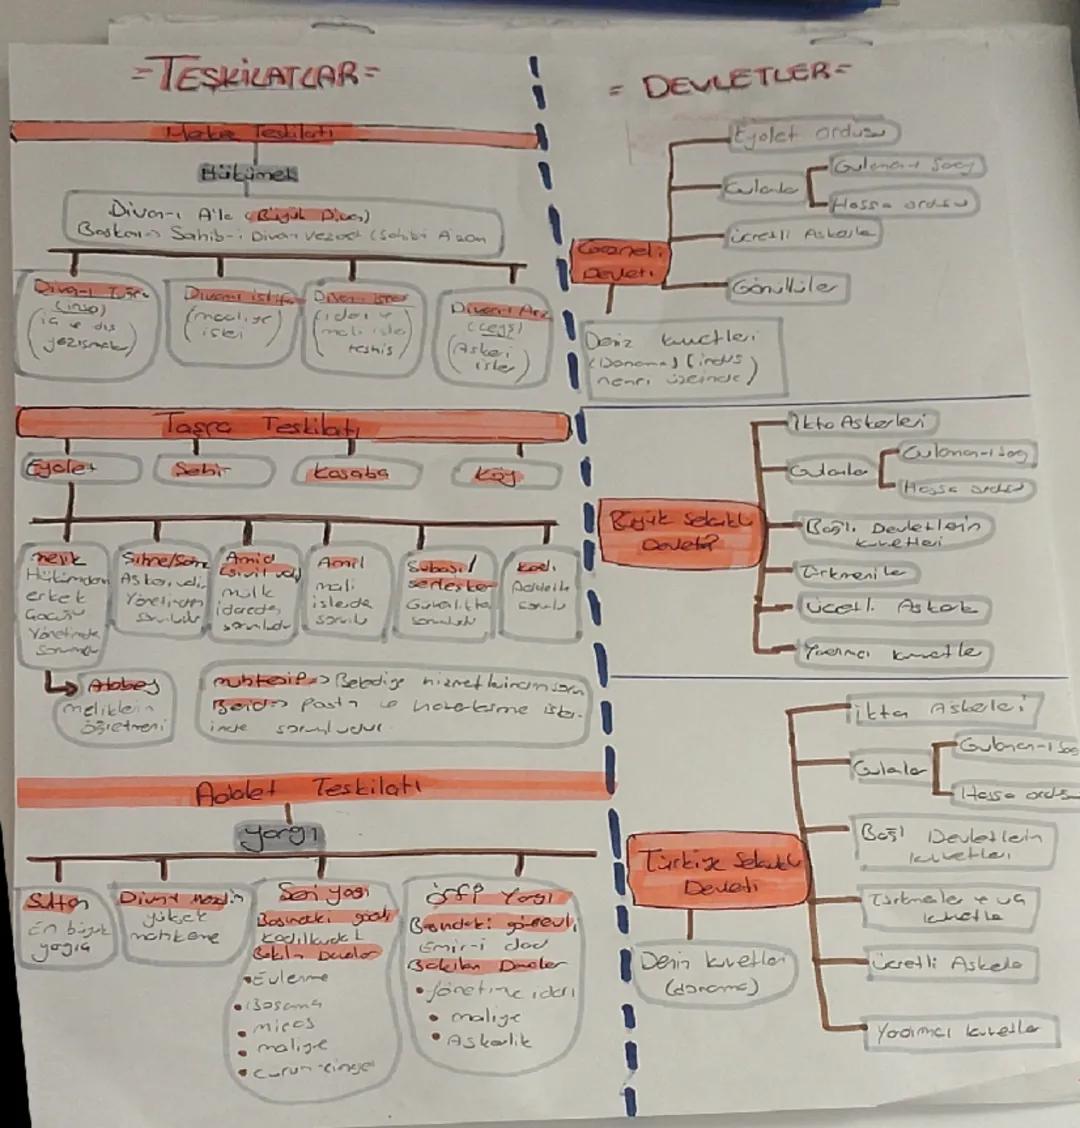 =TEŞKİLATLAR=
Merkez Teşkilatı
Hükümet
Divan-ı A'le (Büyük Divan)
Başkanı Sahib-i Divan vezaet (Sahibi Aizon
Divan-ı Tuğra
(inşa)
(iç ve dış
yazışmalar)
Divan-ı istifa
(maaliye
işleri
Divan-ı İşraf
(idari ve
mali işler
teşhis)
Divan-ı Arz
(ceyş)
(Askeri
işler)
Taşra Teşkilatı
Eyalet
Şehir
Kasaba
Köy
melik
Hükümdarın
erkek
Çocuğu
Yönetimde
Sorumlu
Atabey
meliklerin
öğretmeni
Şıhne/
Askeri vali
Yönetimden
sorumludur
Amid
(sivil vali)
mülk
idareden
sorumludur
Amil
mali
işlerde
sorumlu
Subaşı/
serleşker
Güvenlikten
sorumludur
kadı
Adaletle
sorumlu
muhtesip → Belediye hizmetlerinden sorum
Berid → Posta ve haberleşme işler-
inde sorumludur.
Adalet Teşkilatı
yargı
Sultan
En büyük
yargıç
Divan-ı Mezalim
yüksek
mahkeme
Şeri yargı
Başındaki görevli
kadılkudat
Bakılan Davalar
•Evlenme
•Boşanma
• miras
• maliye
örfi Yargı
Başındaki görevli
Emir-i dad
Bakılan Davalar
•Yönetim idari
• maliye
• Askerlik
= DEVLETLER=
Gazneli
Devleti
Eyalet ordusu
Gulamlar
Gulaman-ı Saray
Hassa ordusu
ücretli Askerler
Gönüllüler
Deniz kuvetleri
(Donanma) (indus
nehri üzerinde)
Büyük Selçuklu
Devleti
İkta Askerleri
Gulamlar
Gulaman-ı Saray
Hassa ordusu
Bağlı Devletlerin
kuvetleri
Türkmenler
ücretli Askerler
Yardımcı kuvetler
Türkiye Selçuklu
Devleti
Deniz kuvetleri
(donanma)
ikta Askerleri
Gulamlar
Gulaman-ı Saray
Hassa ordusu
Bağlı Devletlerin
kuvetleri
Türkmenler ve uç
kuvetler
ücretli Askerler
Yardımcı kuvetler